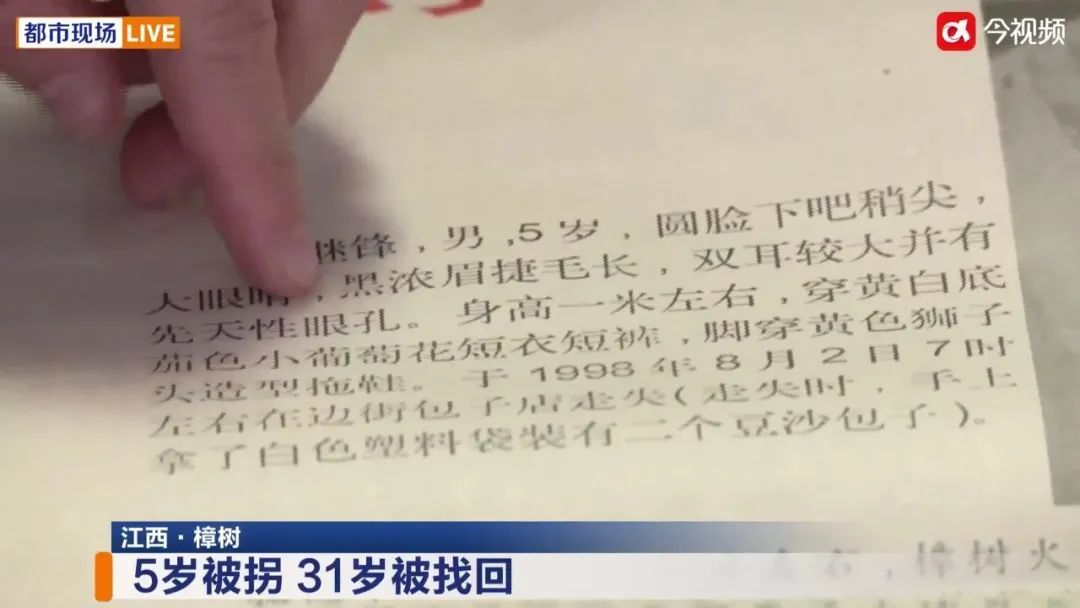 都市现场 LIVE
今视频
锋，男,5岁，圆脸下吧稍尖，
大眼睛，黑浓眉捷毛长，双耳较大并有
先天性眼孔。身高一米左右，穿黄白底
茄色小葡萄花短衣短裤，脚穿黄色狮子
头造型拖鞋。于1998年8月2日7时
左右在边街包子店走失(走失时，手上
拿了白色塑料袋装有二个豆沙包子)。
江西·樟树
5岁被拐 31岁被找回
右，樟树火